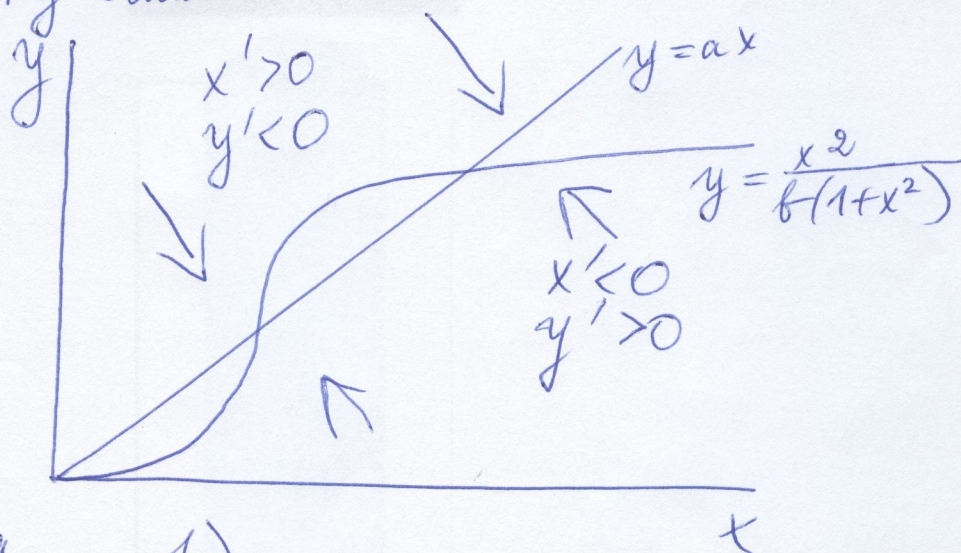 y
x'>0
y'<0
y=ax
y=x²/b(1+x²)
x'<0
y'>0
x
1)